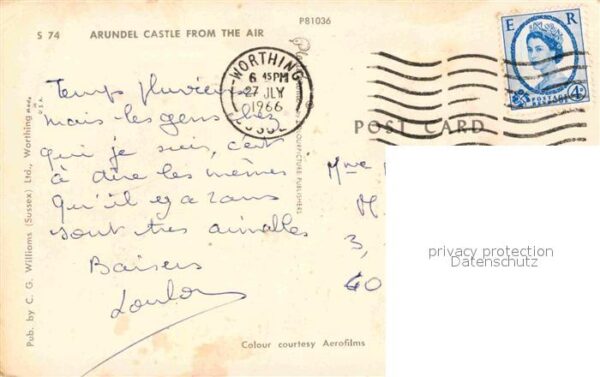 S 74 ARUNDEL CASTLE FROM THE AIR
P81036
E R
POSTAGE
4D
WORTHING
6 45 PM
27 JLY
1966
SUSSEX
POST CARD
Temps pluvieux
mais les gens chez
qui je suis, c'est
à dire les mêmes
qu'il y a 2 ans
sont très aimables
Baisers
Loulou
Mme
M
3,
60
privacy protection
Datenschutz
Pub. by C. G. Williams (Sussex) Ltd., Worthing
Colour courtesy Aerofilms